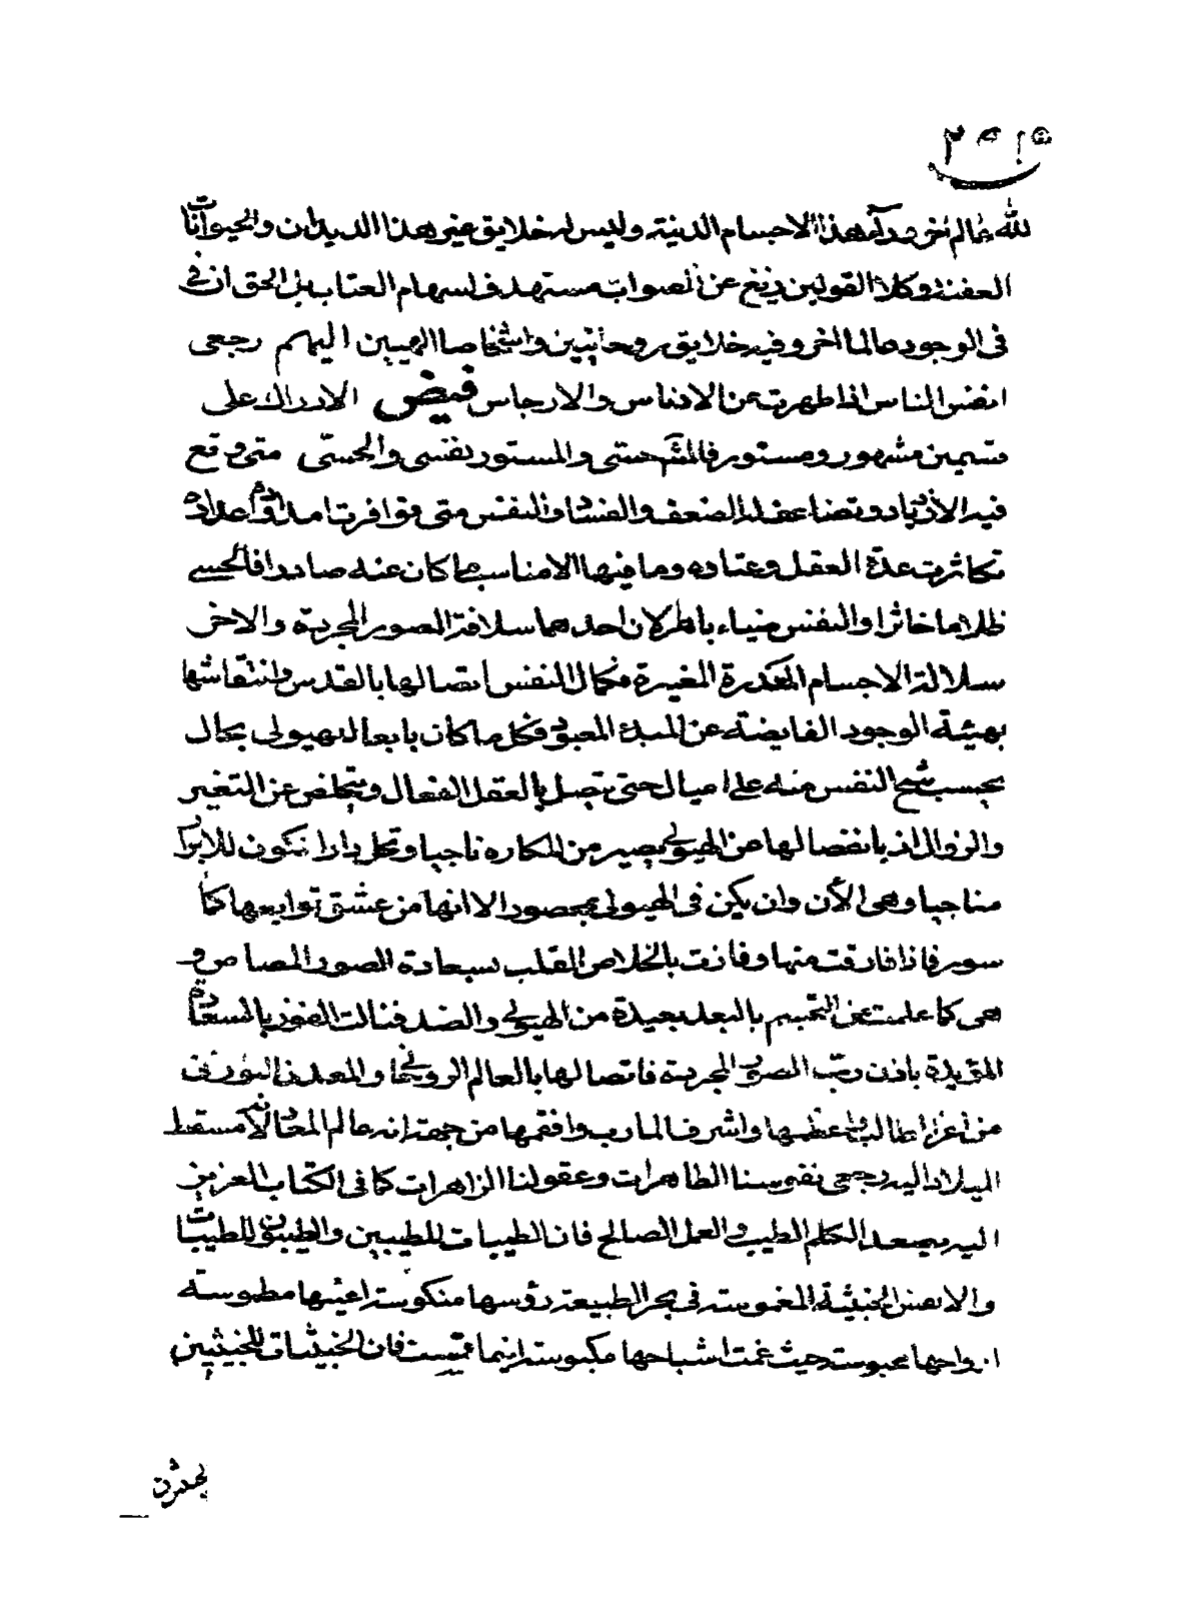 لله عالم اخر وراء هذا الاجسام الدنية وليس له خلايق غير هذا الديدان والحيوانات
العفنة وكلا القولين زيغ عن الصواب مستهدف لسهام العتاب بل الحق ان في
في الوجود عالما اخر وفيه خلايق روحانيين واشخاصا الهيين اليهم رجعى
انفس الناس اذا طهرت عن الادناس والارجاس فيض الادراك على
قسمين مشهور ومستور فالمشهور حسى والمستور نفسى والحسّى متى وقع
فيه الازدياد وتضاعف الضعف والفساد والنفس متى توافرت امداده واعداده
تكاثرت عدة العقل وعتاده وما فيها الا مناسب ما كان عنه صادرا فالحسى
ظلاما خاثرا والنفس ضياء باهر لان احدهما سلافة الصور المجردة والاخر
سلالة الاجسام المكدرة المغيرة فكمال النفس اتصالها بالقدس وانتقاشها
بهيئة الوجود الفايضة عن المبدء المعبود فكل ما كان تابعا لهيولى بحال
بحسب النفس منه على اميال حتى تتصل بالعقل الفعال ويتخلص عن التغير
والزوال اذ بانفصالها عن الهيولى يصير من المكاره ناجيا وتحل دارا تكون للابرار
مناجيا وهى الأن وان يكن في الهيولى محصورا الا انها من عشق توابعها
سور فاذا فارقت منها وفازت بالخلاص القلب سعادة الصور
هى كما علمت عن التجسم بالبعد بعيدة من الهيولى والضد فنالت الفوز بالسعادة
المؤيدة باذن ربّ الصور المجردة فاتصالها بالعالم الروحانى والمعدن النورانى
من اعز المطالب واعظمها واشرف المارب وافقمها من جهة انه عالم المعاد لانه مسقط
الميلاد اليه رجعى نفوسنا الطاهرات وعقولنا الزاهرات كما في الكتاب العزيز
اليه يصعد الكلم الطيب والعمل الصالح فان الطيبات للطيبين والطيبون للطيبات
والانفس الخبيثة المغموسة في بحر الطبيعة رؤسها منكوسة اعينها مطموسة
ارواحها محبوسة حيث غمت اشباحها مكبوسة اينما تمست فان الخبيثات للخبيثين